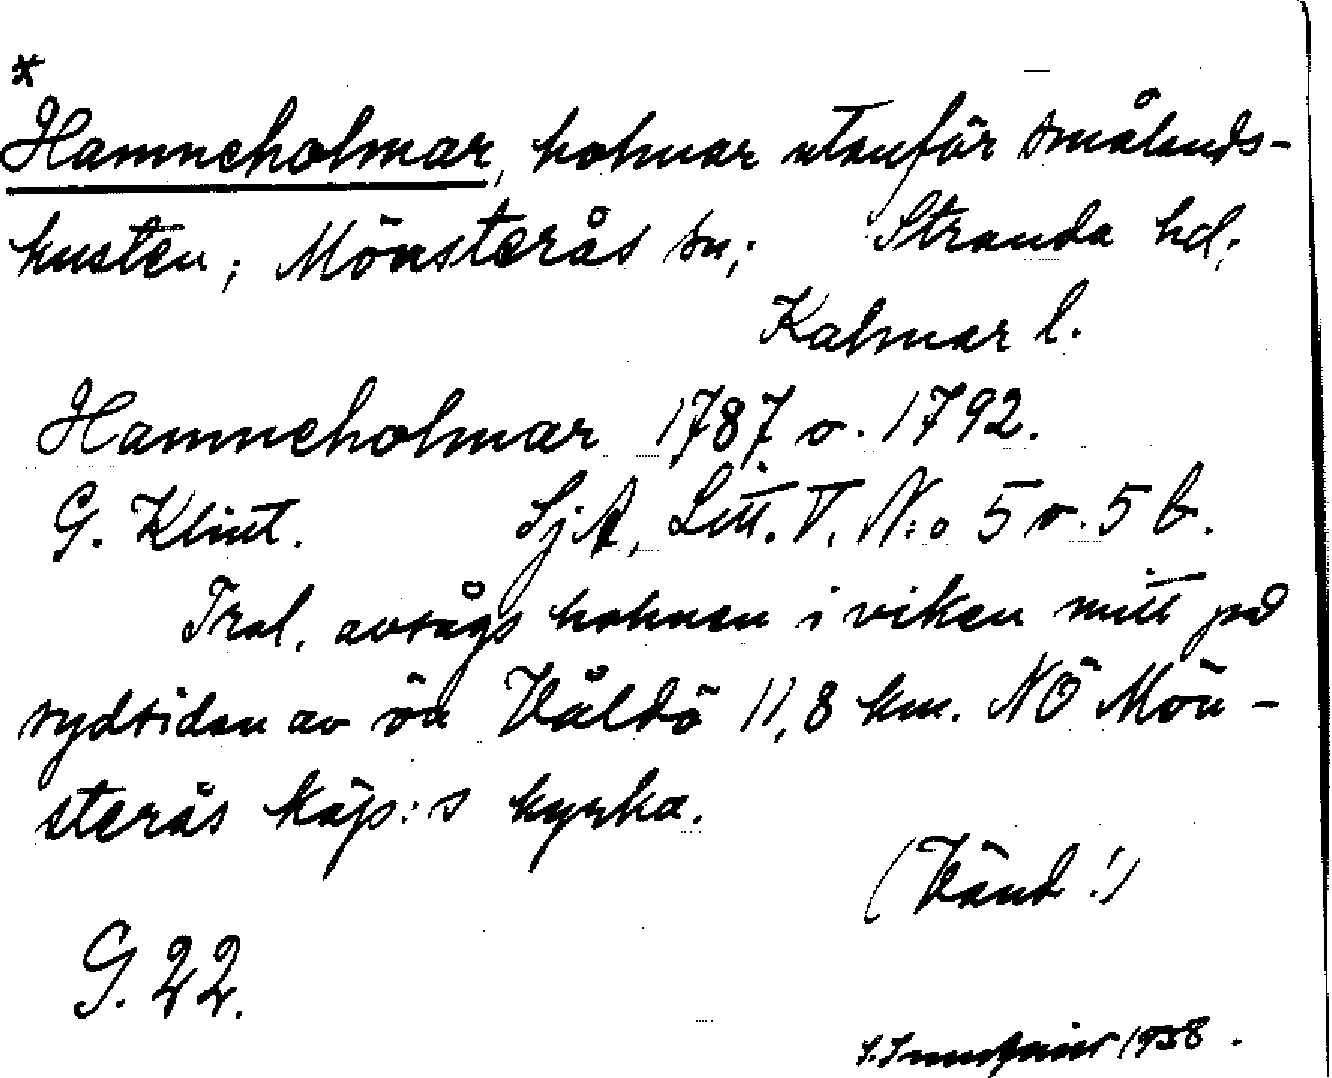 *
Hamneholmar, holmar utanför smålands-
kusten; Mönsterås sn; Stranda hd;
Kalmar l.
Hamneholmar 1787 o. 1792.
G. Klint. SjA, Litt. T. N:o 5 o. 5 b.
Trol. avsågs holmen i viken mitt på
sydsidan av ön Våldö 11,8 km. NÖ Mön-
sterås köp:s kyrka.
(Vänd!)
G. 22.
1958.